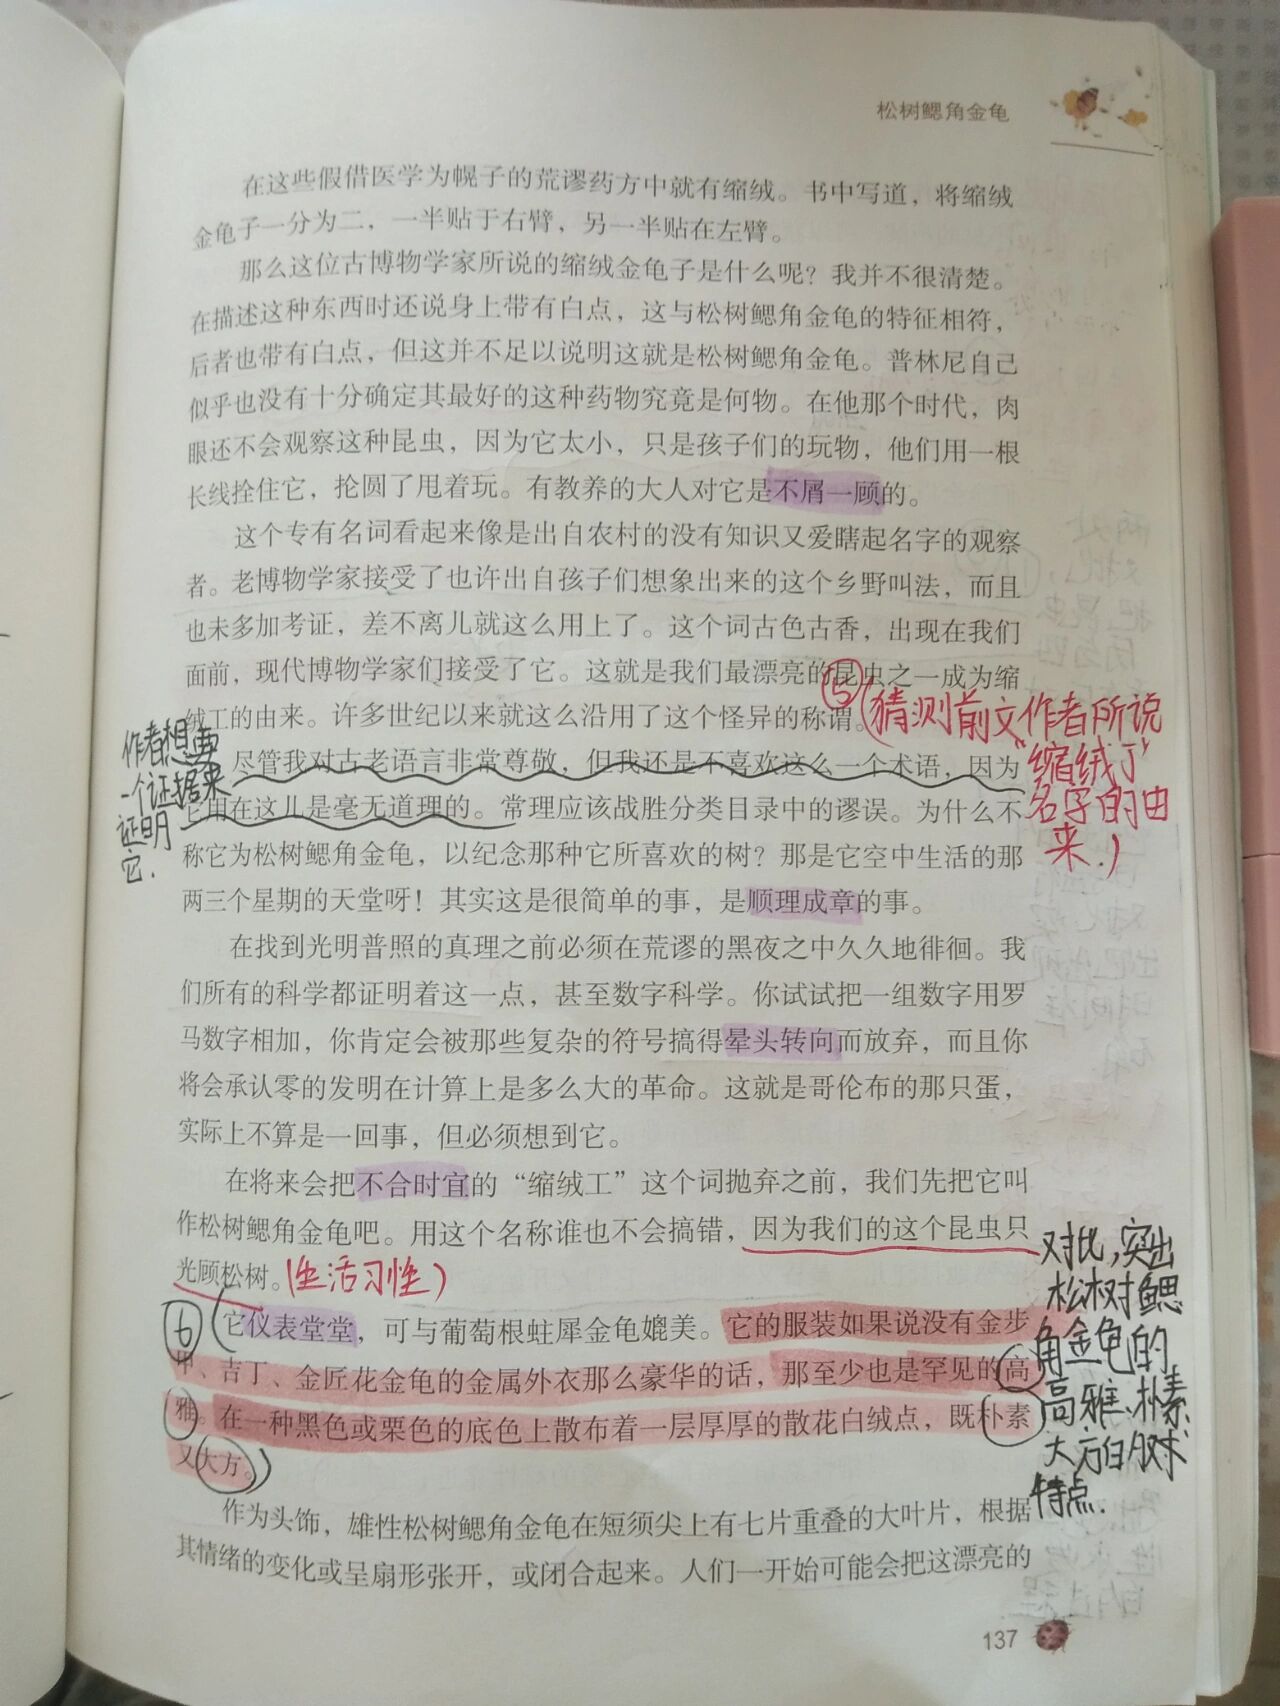 松树鳃角金龟
在这些假借医学为幌子的荒谬药方中就有缩绒。书中写道，将缩绒
金龟子一分为二，一半贴于右臂，另一半贴在左臂。
那么这位古博物学家所说的缩绒金龟子是什么呢？我并不很清楚。
在描述这种东西时还说身上带有白点，这与松树鳃角金龟的特征相符，
后者也带有白点，但这并不足以说明这就是松树鳃角金龟。普林尼自己
似乎也没有十分确定其最好的这种药物究竟是何物。在他那个时代，肉
眼还不会观察这种昆虫，因为它太小，只是孩子们的玩物，他们用一根
长线拴住它，抡圆了甩着玩。有教养的大人对它是不屑一顾的。
这个专有名词看起来像是出自农村的没有知识又爱瞎起名字的观察
者。老博物学家接受了也许出自孩子们想象出来的这个乡野叫法，而且
也未多加考证，差不离儿就这么用上了。这个词古色古香，出现在我们
面前，现代博物学家们接受了它。这就是我们最漂亮的昆虫之一成为缩
绒工的由来。许多世纪以来就这么沿用了这个怪异的称谓。
⑤(猜测前文作者所说
"缩绒工"
名字的由
来.)
作者想要
一个证据来
证明
它.
尽管我对古老语言非常尊敬，但我还是不喜欢这么一个术语，因为
它用在这儿是毫无道理的。常理应该战胜分类目录中的谬误。为什么不
称它为松树鳃角金龟，以纪念那种它所喜欢的树？那是它空中生活的那
两三个星期的天堂呀！其实这是很简单的事，是顺理成章的事。
在找到光明普照的真理之前必须在荒谬的黑夜之中久久地徘徊。我
们所有的科学都证明着这一点，甚至数字科学。你试试把一组数字用罗
马数字相加，你肯定会被那些复杂的符号搞得晕头转向而放弃，而且你
将会承认零的发明在计算上是多么大的革命。这就是哥伦布的那只蛋，
实际上不算是一回事，但必须想到它。
在将来会把不合时宜的“缩绒工”这个词抛弃之前，我们先把它叫
作松树鳃角金龟吧。用这个名称谁也不会搞错，因为我们的这个昆虫只
光顾松树。(生活习性)
⑥
它仪表堂堂，可与葡萄根蛀犀金龟媲美。它的服装如果说没有金步
甲、吉丁、金匠花金龟的金属外衣那么豪华的话，那至少也是罕见的高
雅。在一种黑色或栗色的底色上散布着一层厚厚的散花白绒点，既朴素
又大方。
对比,突出
松树鳃
角金龟的
高雅、朴素、
大方的
特点.
作为头饰，雄性松树鳃角金龟在短须尖上有七片重叠的大叶片，根据
其情绪的变化或呈扇形张开，或闭合起来。人们一开始可能会把这漂亮的
137